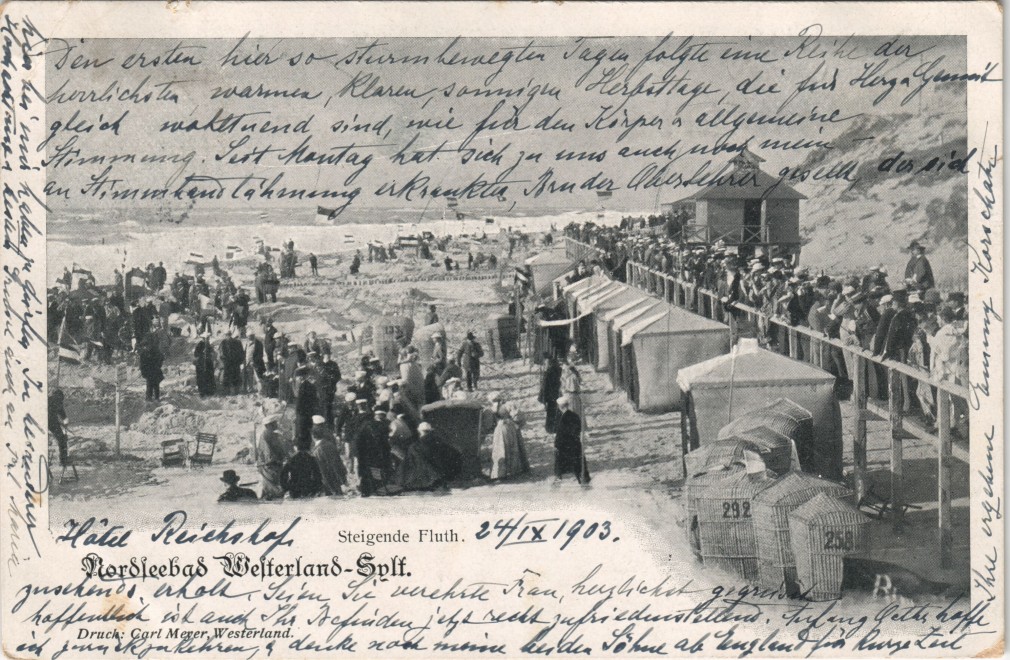 Den ersten hier so sturmbewegten Tagen folgte eine Reihe der
herrlichsten warmen, klaren, sonnigen Herbsttage, die für Herz u Gemüt
gleich wohltuend sind, wie für den Körper u allgemeine
Stimmung. Seit Montag hat sich zu uns auch noch mein
an Stimmbandlähmung erkrankter Bruder Oberlehrer gesellt der sich
Hôtel Reichshof.
Steigende Fluth.
24/IX 1903.
Nordseebad Westerland-Sylt.
292
258
zusehends erholt. Seien Sie verehrte Frau, herzlichst gegrüsst
hoffentlich ist auch Ihr Befinden jetzt recht zufriedenstellend. Anfang Octbr hoffe
Druck: Carl Meyer, Westerland.
ich zurückzukehren, u denke noch meine beiden Söhne ab England für kurze Zeit
hier bei mir haben zu dürfen. In besonderer
Hochachtung
Ihre ergebene Korschatz